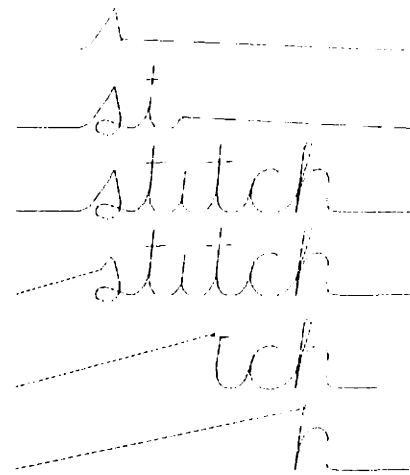 st
stitch
stitch
tch
h